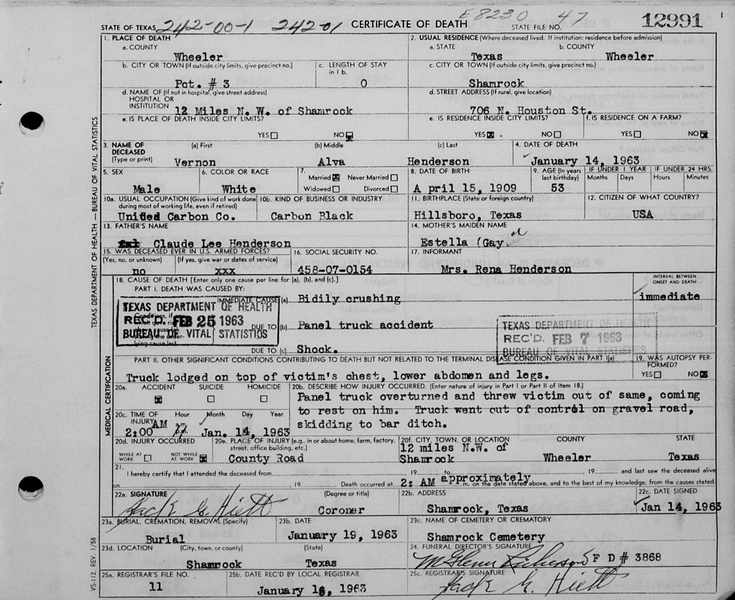 STATE OF TEXAS 242-00-1 242-01 CERTIFICATE OF DEATH STATE FILE NO. 47 12991
1. PLACE OF DEATH 2. USUAL RESIDENCE (Where deceased lived. If institution: residence before admission)
a. COUNTY a. STATE b. COUNTY
Wheeler Texas Wheeler
b. CITY OR TOWN (If outside city limits, give precinct no.) c. LENGTH OF STAY in 1 b. c. CITY OR TOWN (If outside city limits, give precinct no.)
Pct. # 3 0 Shamrock
d. NAME OF (If not in hospital, give street address) HOSPITAL OR INSTITUTION d. STREET ADDRESS (If rural, give location)
12 Miles N. W. of Shamrock 706 N. Houston St.
e. IS PLACE OF DEATH INSIDE CITY LIMITS? e. IS RESIDENCE INSIDE CITY LIMITS? f. IS RESIDENCE ON A FARM?
YES NO YES NO YES NO
3. NAME OF DECEASED (Type or print) (a) First (b) Middle (c) Last 4. DATE OF DEATH
Vernon Alva Henderson January 14, 1963
5. SEX 6. COLOR OR RACE 7. Married Never Married Widowed Divorced 8. DATE OF BIRTH 9. AGE (In years last birthday) IF UNDER 1 YEAR Months Days IF UNDER 24 HRS. Hours Minutes
Male White A pril 15, 1909 53
10a. USUAL OCCUPATION (Give kind of work done during most of working life, even if retired) 10b. KIND OF BUSINESS OR INDUSTRY 11. BIRTHPLACE (State or foreign country) 12. CITIZEN OF WHAT COUNTRY?
United Carbon Co. Carbon Black Hillsboro, Texas USA
13. FATHER'S NAME 14. MOTHER'S MAIDEN NAME
Claude Lee Henderson Estella (Gay
15. WAS DECEASED EVER IN U.S. ARMED FORCES? (Yes, no, or unknown) (If yes, give war or dates of service) 16. SOCIAL SECURITY NO. 17. INFORMANT
no xxx 458-07-0154 Mrs. Rena Henderson
18. CAUSE OF DEATH [Enter only one cause per line for (a), (b), and (c).] INTERVAL BETWEEN ONSET AND DEATH
PART I. DEATH WAS CAUSED BY:
IMMEDIATE CAUSE (a) Bidily crushing immediate
DUE TO (b) Panel truck accident
DUE TO (c) Shock.
TEXAS DEPARTMENT OF HEALTH
REC'D FEB 25 1963
BUREAU OF VITAL STATISTICS
TEXAS DEPARTMENT OF HEALTH
REC'D FEB 7 1963
BUREAU OF VITAL STATISTICS
PART II. OTHER SIGNIFICANT CONDITIONS CONTRIBUTING TO DEATH BUT NOT RELATED TO THE TERMINAL DISEASE CONDITION GIVEN IN PART I(a) 19. WAS AUTOPSY PERFORMED?
Truck lodged on top of victim's chest, lower abdomen and legs. YES NO
20a. ACCIDENT SUICIDE HOMICIDE 20b. DESCRIBE HOW INJURY OCCURRED. (Enter nature of injury in Part I or Part II of Item 18.)
Panel truck overturned and threw victim out of same, coming
to rest on him. Truck went out of control on gravel road,
skidding to bar ditch.
20c. TIME OF INJURY Hour Month Day Year
AM
2:00 Jan. 14, 1963
20d. INJURY OCCURRED WHILE AT WORK NOT WHILE AT WORK 20e. PLACE OF INJURY (e.g., in or about home, farm, factory, street, office building, etc.) 20f. CITY, TOWN, OR LOCATION COUNTY STATE
County Road 12 miles N.W. of Shamrock Wheeler Texas
21. I hereby certify that I attended the deceased from 19 to 19 and last saw the deceased alive
on 19 Death occurred at 2: AM approximately m. on the date stated above, and to the best of my knowledge, from the causes stated.
22a. SIGNATURE (Degree or title) 22b. ADDRESS 22c. DATE SIGNED
Jack G. Hiett Coroner Shamrock, Texas Jan 14, 1963
23a. BURIAL, CREMATION, REMOVAL (Specify) 23b. DATE 23c. NAME OF CEMETERY OR CREMATORY
Burial January 19, 1963 Shamrock Cemetery
23d. LOCATION (City, town, or county) (State) 24. FUNERAL DIRECTOR'S SIGNATURE
Shamrock Texas F D # 3868
25a. REGISTRAR'S FILE NO. 25b. DATE REC'D BY LOCAL REGISTRAR 25c. REGISTRAR'S SIGNATURE
11 January 18, 1963 Jack G. Hiett
TEXAS DEPARTMENT OF HEALTH — BUREAU OF VITAL STATISTICS
MEDICAL CERTIFICATION
VS-112, REV. 1/58